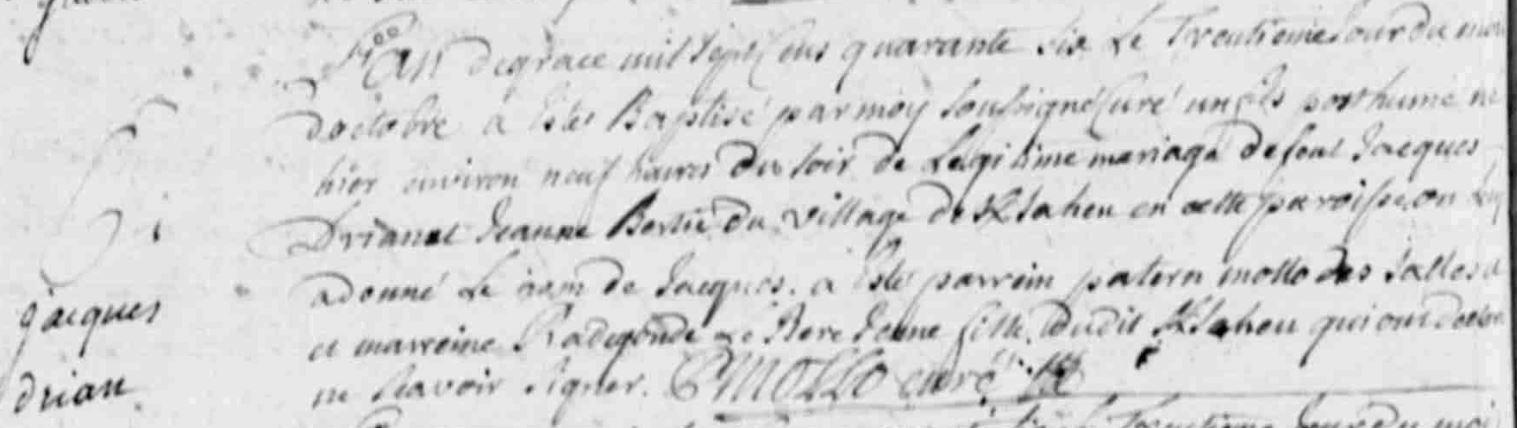 L'an de grace mil sept cens quarante six Le Trentieme Jour du moi
doctobre a Esté Baptisé par moy soussigné Curé un fils posthume né
hier environ neuf heures Du soir de Legitime mariage de feu Jacques
Drian et Jeanne Bertie du village de Ksaheu en cette paroisse, on luy
a donné Le nom de Jacques. a Esté parrein patern mollo des salles
jacques
et marreine Radegonde Le Bere Jeune fille dudit Ksaheu qui ont declaré
drian
ne sçavoir signer. P MOLLO curé
Trentieme jour du moi